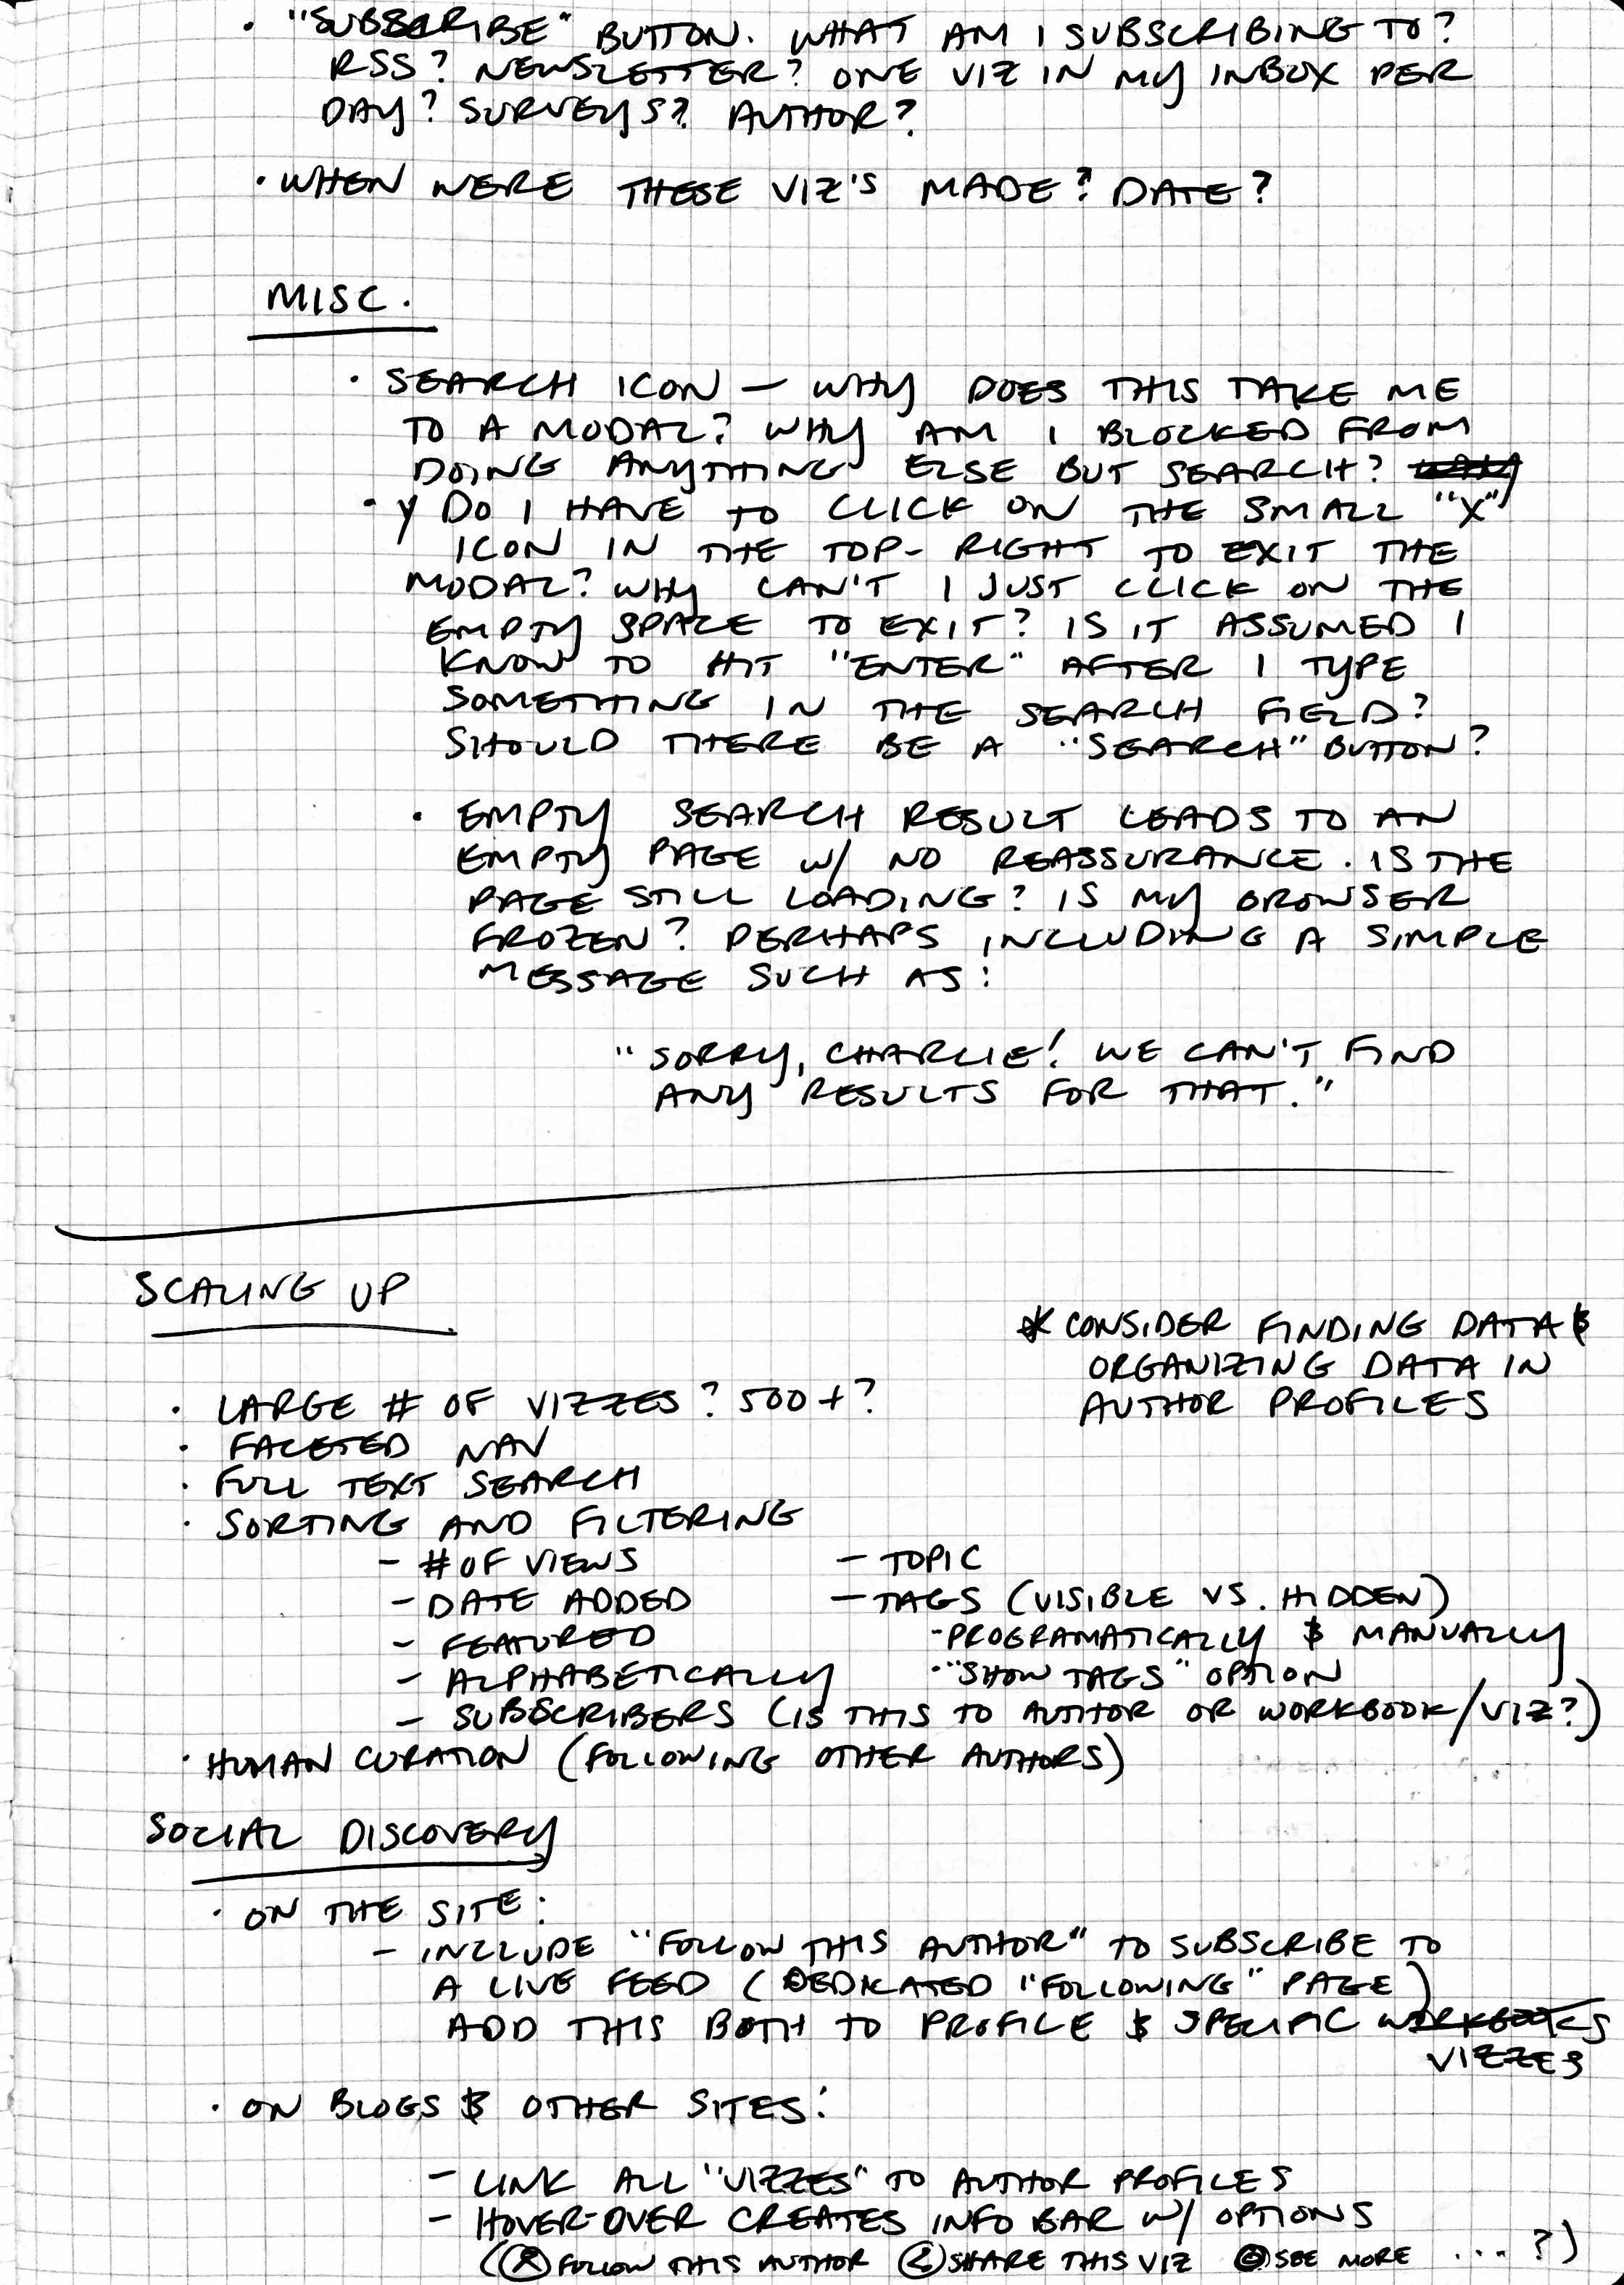 · "SUBSCRIBE" BUTTON. WHAT AM I SUBSCRIBING TO?
RSS? NEWSLETTER? ONE VIZ IN MY INBOX PER
DAY? SURVEYS? AUTHOR?
· WHEN WERE THESE VIZ'S MADE? DATE?
MISC.
· SEARCH ICON – WHY DOES THIS TAKE ME
TO A MODAL? WHY AM I BLOCKED FROM
DOING ANYTHING ELSE BUT SEARCH?
· Y DO I HAVE TO CLICK ON THE SMALL "X"
ICON IN THE TOP-RIGHT TO EXIT THE
MODAL? WHY CAN'T I JUST CLICK ON THE
EMPTY SPACE TO EXIT? IS IT ASSUMED I
KNOW TO HIT "ENTER" AFTER I TYPE
SOMETHING IN THE SEARCH FIELD?
SHOULD THERE BE A "SEARCH" BUTTON?
· EMPTY SEARCH RESULT LEADS TO AN
EMPTY PAGE W/ NO REASSURANCE. IS THE
PAGE STILL LOADING? IS MY BROWSER
FROZEN? PERHAPS INCLUDING A SIMPLE
MESSAGE SUCH AS:
"SORRY, CHARLIE! WE CAN'T FIND
ANY RESULTS FOR THAT."
SCALING UP
* CONSIDER FINDING DATA &
ORGANIZING DATA IN
AUTHOR PROFILES
· LARGE # OF VIZZES? 500+?
· FACETED NAV
· FULL TEXT SEARCH
· SORTING AND FILTERING
– # OF VIEWS – TOPIC
– DATE ADDED – TAGS (VISIBLE VS. HIDDEN)
– FEATURED - PROGRAMATICALLY & MANUALLY
– ALPHABETICALLY · "SHOW TAGS" OPTION
– SUBSCRIBERS (IS THIS TO AUTHOR OR WORKBOOK/VIZ?)
· HUMAN CURATION (FOLLOWING OTHER AUTHORS)
SOCIAL DISCOVERY
· ON THE SITE:
– INCLUDE "FOLLOW THIS AUTHOR" TO SUBSCRIBE TO
A LIVE FEED (DEDICATED "FOLLOWING" PAGE)
ADD THIS BOTH TO PROFILE & SPECIFIC WORKBOOKS
VIZZES
· ON BLOGS & OTHER SITES:
– LINK ALL "VIZZES" TO AUTHOR PROFILES
– HOVER-OVER CREATES INFO BAR W/ OPTIONS
( FOLLOW THIS AUTHOR SHARE THIS VIZ SEE MORE ...?)